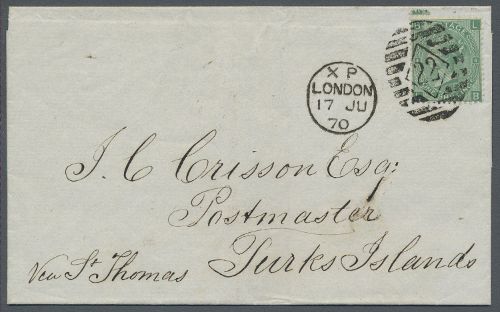 XP
LONDON
17 JU
70
22
L
B
J. C Crisson Esq:
Postmaster
Turks Islands
Via St Thomas